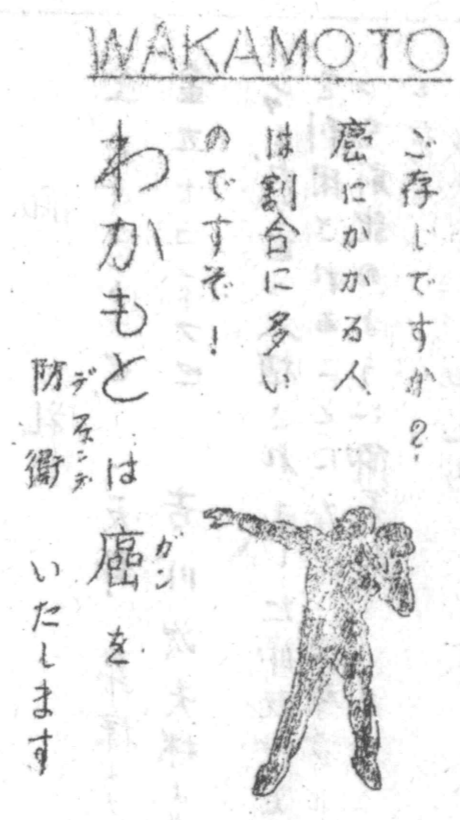 WAKAMOTO
ご存じですか?
癌にかかる人
は割合に多い
のですぞ!
わかもとは癌を
ガン
防衛いたします